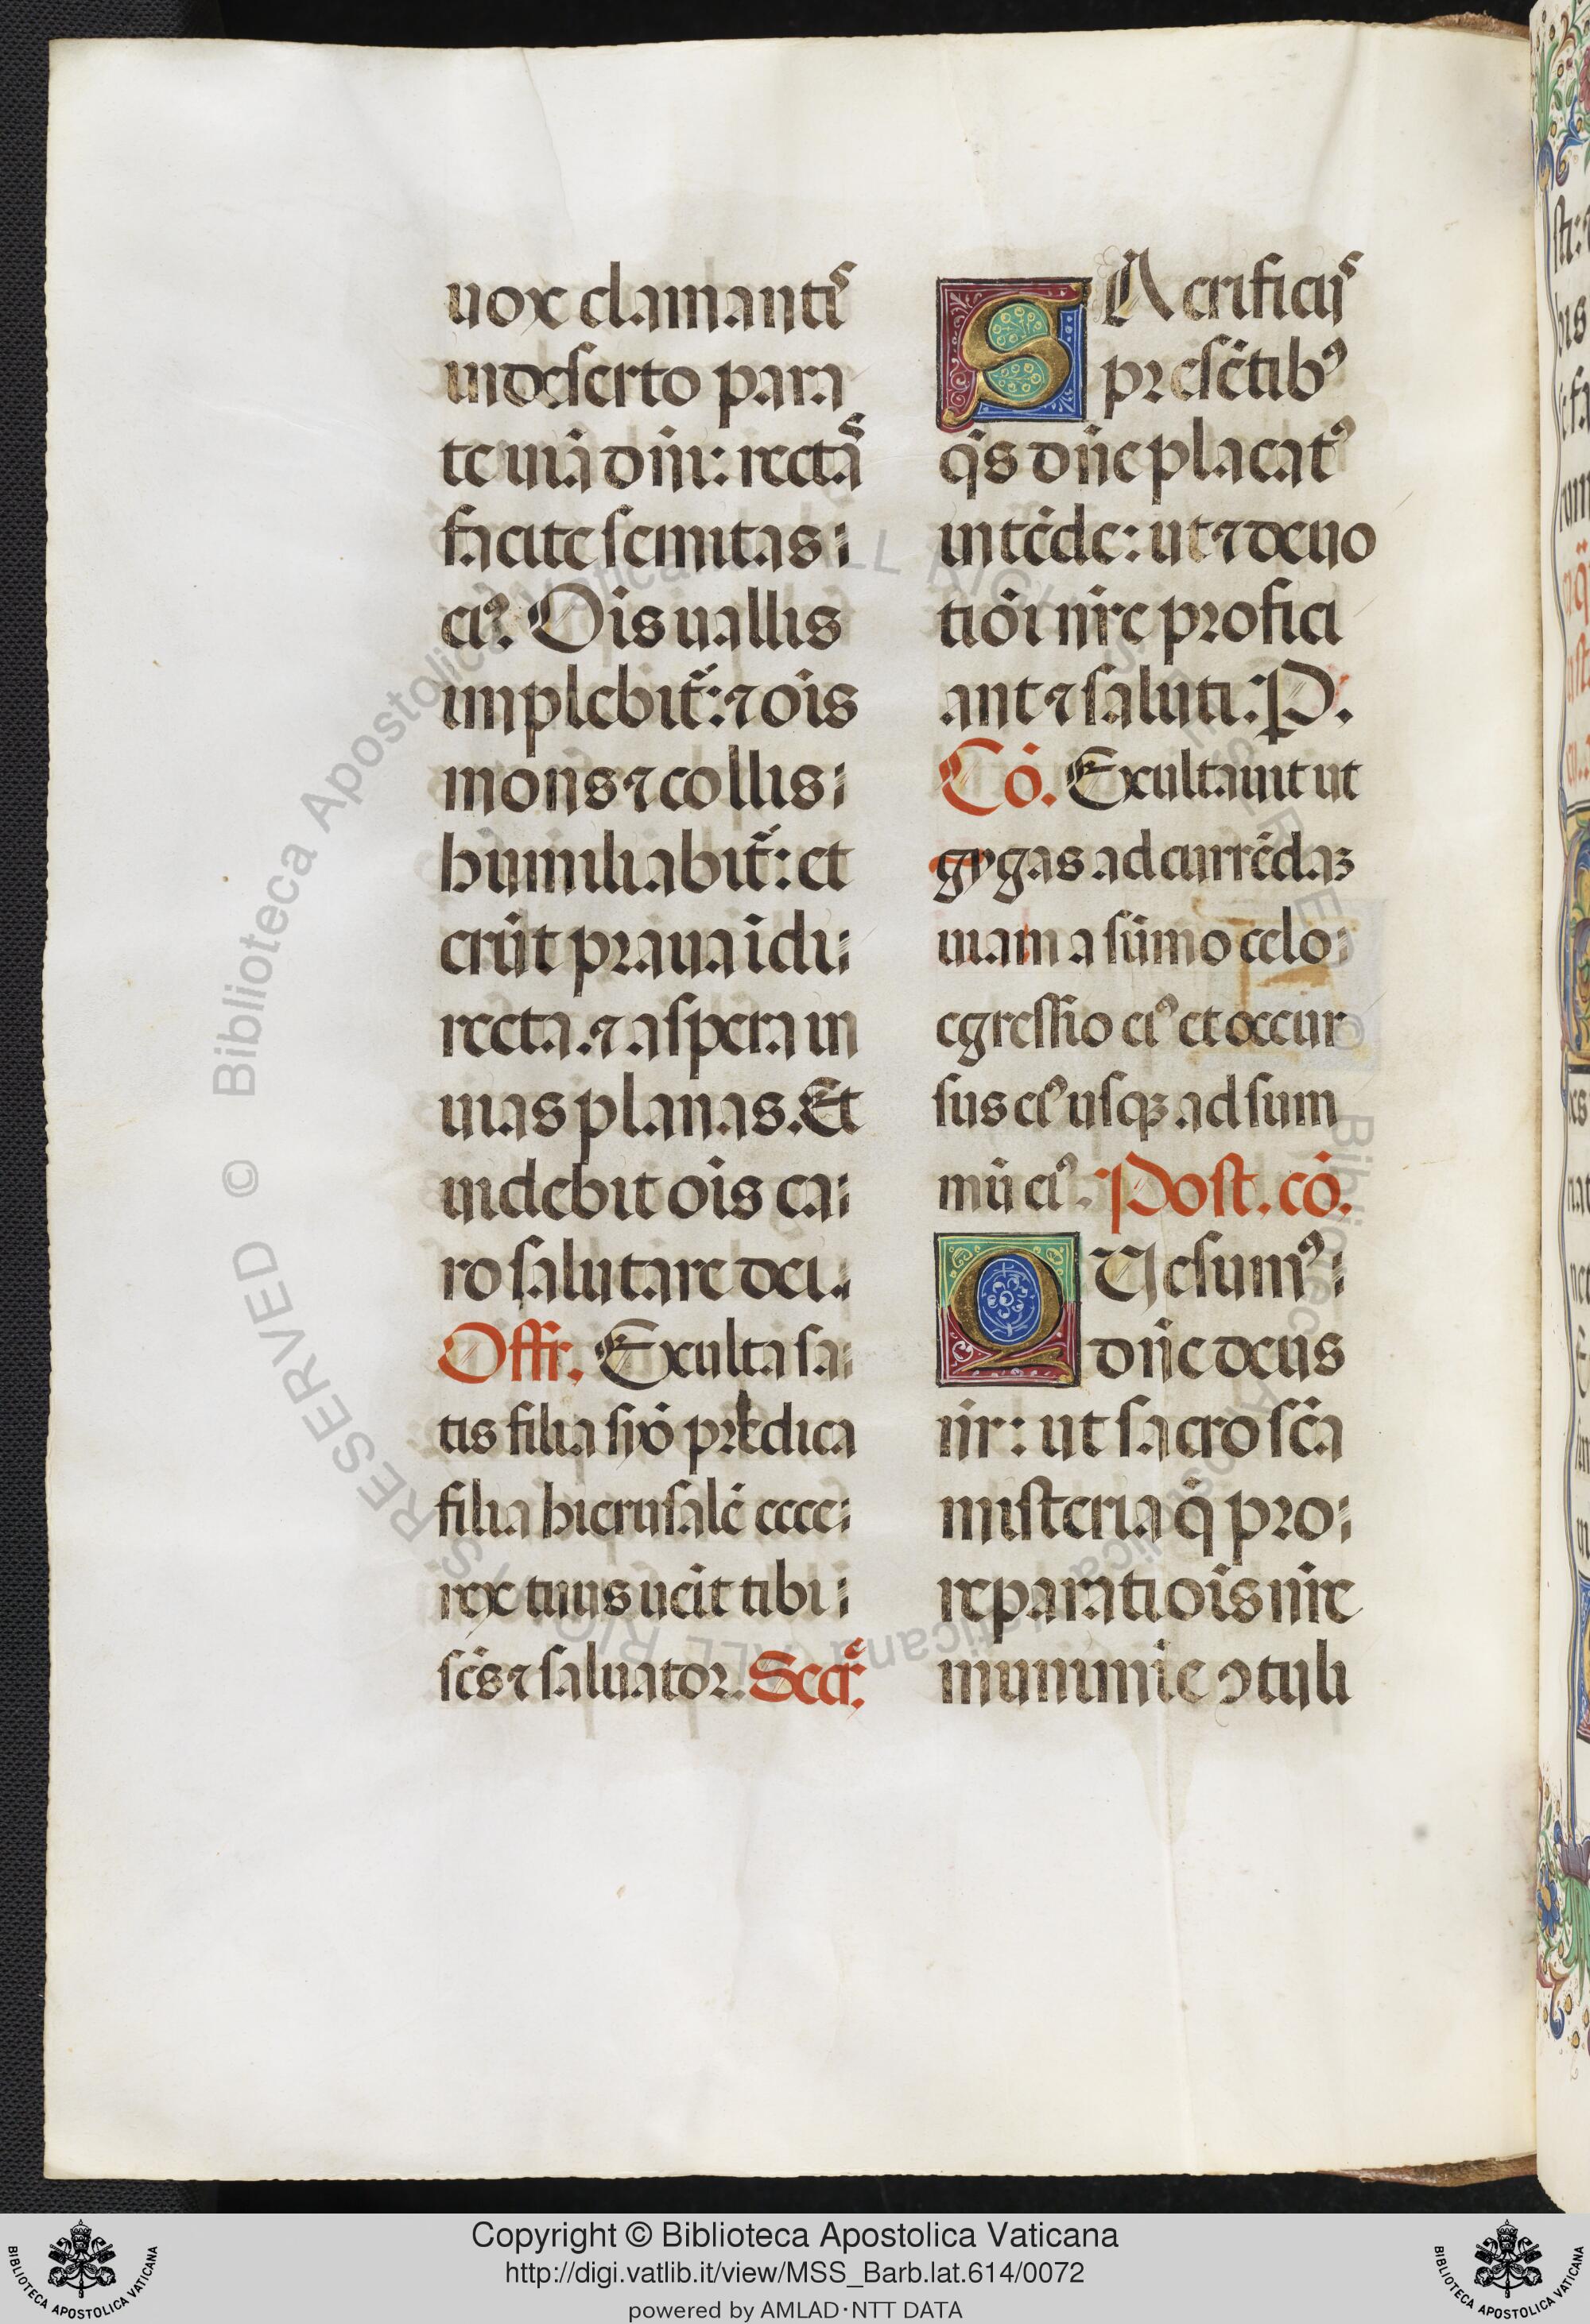 uox clamantis
in deserto para
te uiā dñi: rectas
facite semitas
ei⁹. Oīs uallis
implebit̄: ⁊ oīs
mons ⁊ collis
humiliabit̄: et
erūt praua ī di
recta. ⁊ aspera in
uias planas. Et
uidebit oīs ca
ro salutare dei.
Offr. Exulta sa
tis filia syō predica
filia hierusalē ecce
rex tuus ueīt tibi
scs̄ ⁊ saluator. Secr̄.
SAcrificijs
presētib⁹
q̄s dn̄e placat⁹
intēde: ut ⁊ deuo
tiōi nr̄e profici
ant ⁊ saluti. P.
Cō. Exultauit ut
gygas ad currēdaꝫ
uiam a sūmo celo
egressio ei⁹ et occur
sus ei⁹ usqꝫ ad sum
mū ei⁹. Post. cō.
QUesum⁹
dn̄e deus
nr̄: ut sacro scā
misteria q̄ pro
reparatiōis nr̄e
munimīe ꝯtuli
© Biblioteca Apostolica Vaticana ALL RIGHTS RESERVED
Copyright © Biblioteca Apostolica Vaticana
http://digi.vatlib.it/view/MSS_Barb.lat.614/0072
powered by AMLAD·NTT DATA
BIBLIOTECA APOSTOLICA VATICANA
BIBLIOTECA APOSTOLICA VATICANA